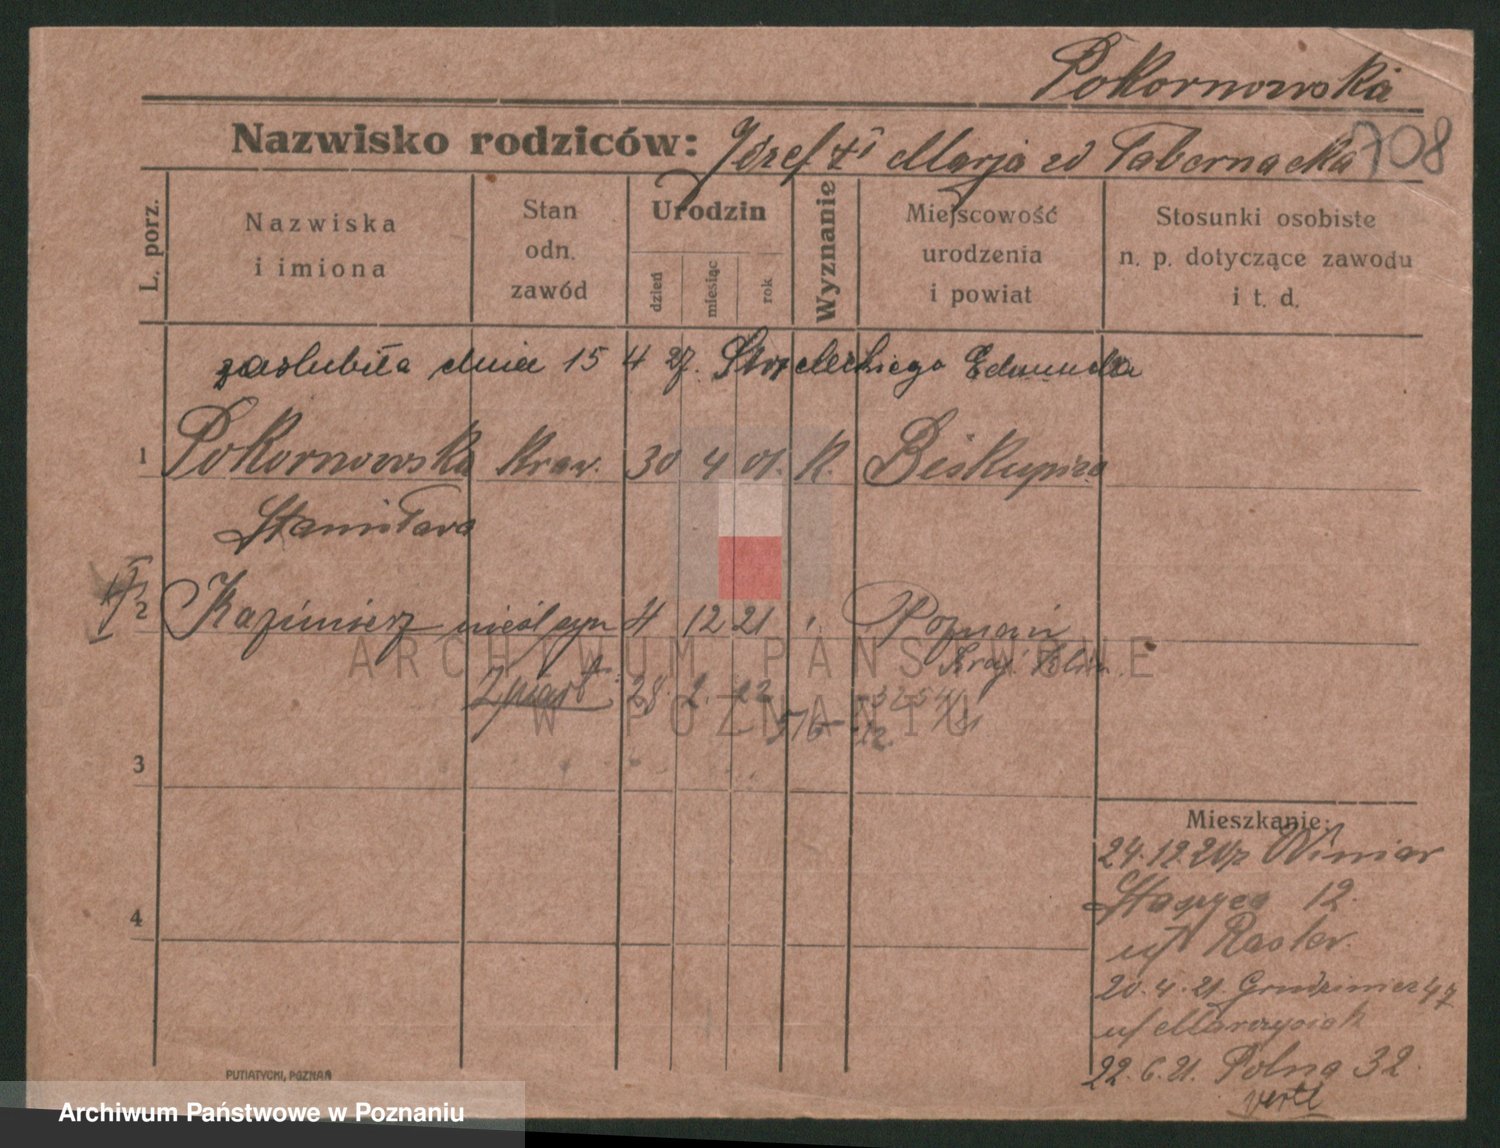 Pokornowska
Nazwisko rodziców: Józef i Marja zd Tabernacka 708
L. porz.
Nazwiska i imiona
Stan odn. zawód
Urodzin
dzień miesiąc rok
Wyznanie
Miejscowość urodzenia i powiat
Stosunki osobiste n. p. dotyczące zawodu i t. d.
zaslubiła dnia 15 4 27. Strzeleckiego Edmunda
1 Pokornowska Kraw. 30 4 01. K. Biskupice
Stanisława
2 Kazimierz nieśl syn 4 12 21 Poznań
Kraj. Klin.
Zmarł 28. 2. 22
3
4
Mieszkanie:
24.12.20 z Winiar
Staszyca 12.
u/
20.4.21. Grudzieniec 47
u/ Marczyniak
22.6.21. Polna 32.
verte
PUTIATYCKI, POZNAŃ
ARCHIWUM PAŃSTWOWE
W POZNANIU
Archiwum Państwowe w Poznaniu